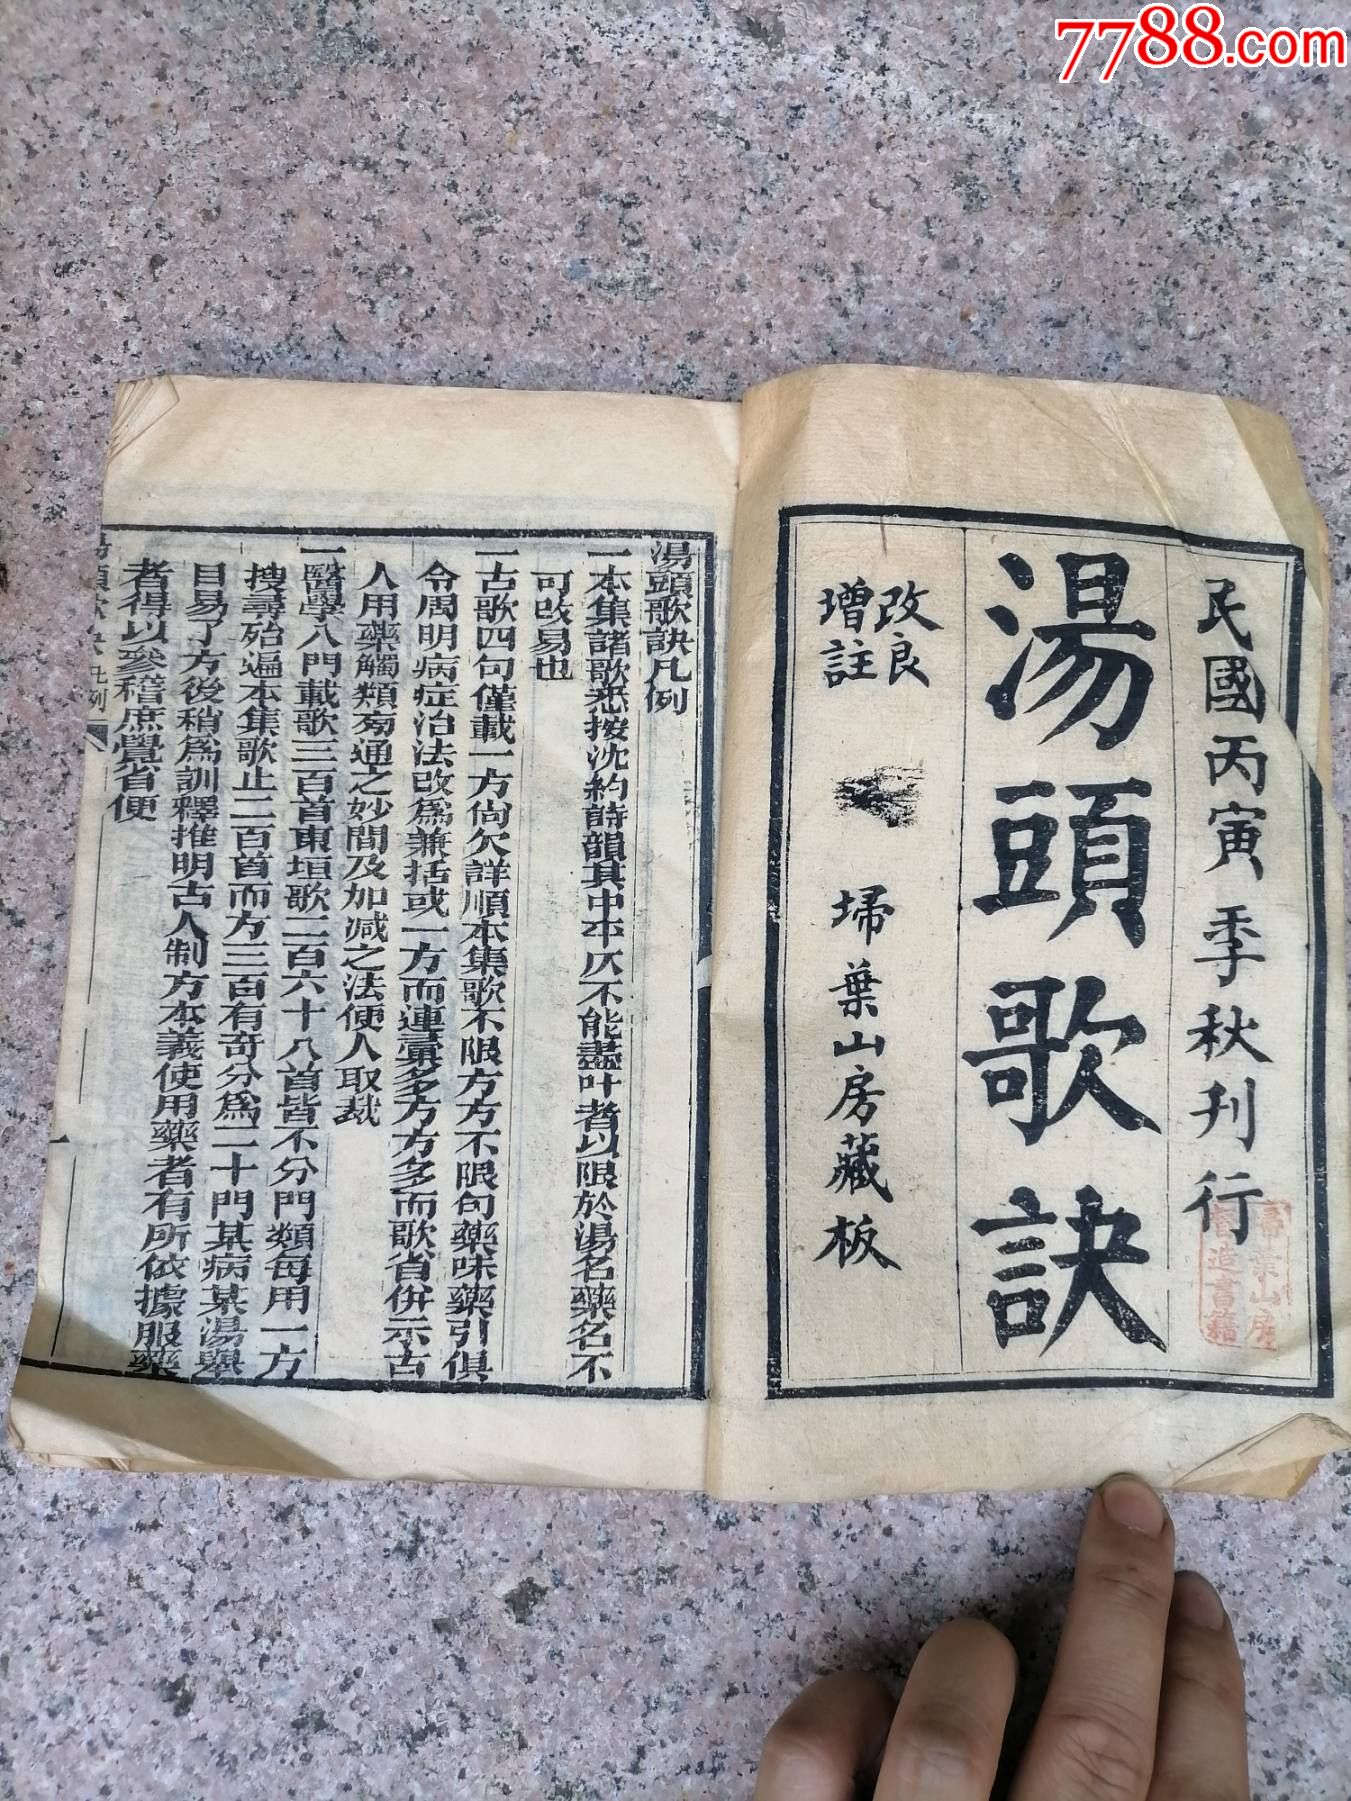 7788.com
民國丙寅季秋刊行
湯頭歌訣
改良
增註
埽葉山房藏板
埽葉山房
督造書籍
湯頭歌訣凡例
一本集諸歌悉按沈約詩韻其中平仄不能盡叶者以限於湯名藥名不
可改易也
一古歌四句僅載一方尚欠詳順本集歌不限方方不限句藥味藥引俱
令周明病症治法改為兼括或一方而連彙多方方多而歌省併示古
人用藥觸類旁通之妙間及加減之法便人取裁
一醫學八門載歌三百首東垣歌二百六十八首皆不分門類每用一方
搜尋殆遍本集歌止二百首而方三百有奇分為二十門某病某湯舉
目易了方後稍為訓釋推明古人制方本義使用藥者有所依據服藥
者得以參稽庶覺省便
湯頭歌訣 凡例
一